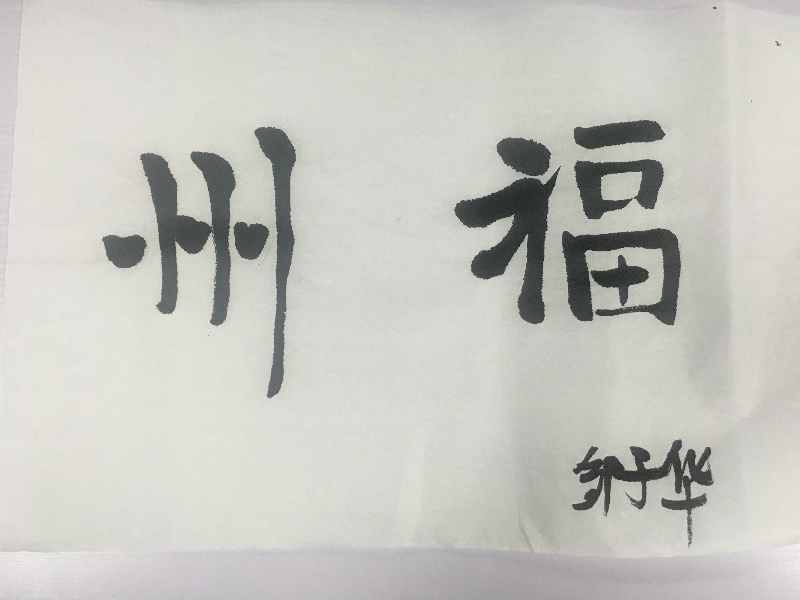 福州
邹子华